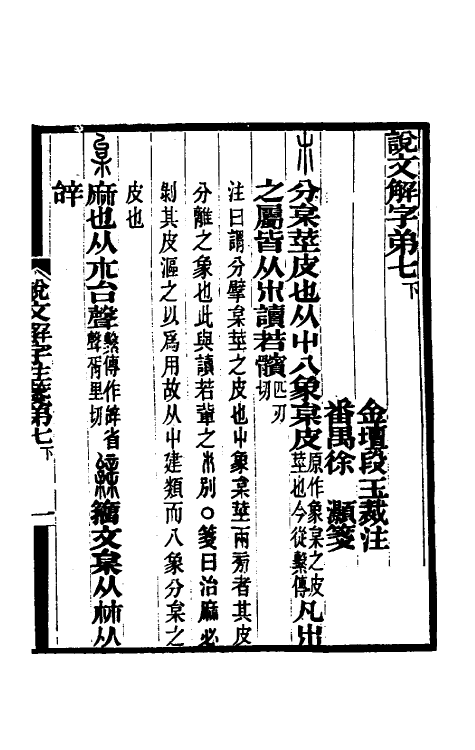 說文解字弟七下
金壇段玉裁注
番禺徐　灝箋
𣎳分枲莖皮也从屮八象枲皮原作象枲之皮莖也今從繫傳凡𣎳
之屬皆从𣎳讀若髕匹刃切
注曰謂分擘枲莖之皮也屮象枲莖兩旁者其皮
分離之象也此與讀若輩之𣎵別○箋曰治麻必
剝其皮漚之以爲用故从屮建類而八象分枲之
皮也
枲麻也从𣎳台聲繫傳作辝省聲胥里切𦃷籒文枲从𣏟从
辝
說文解字注箋第七下
一